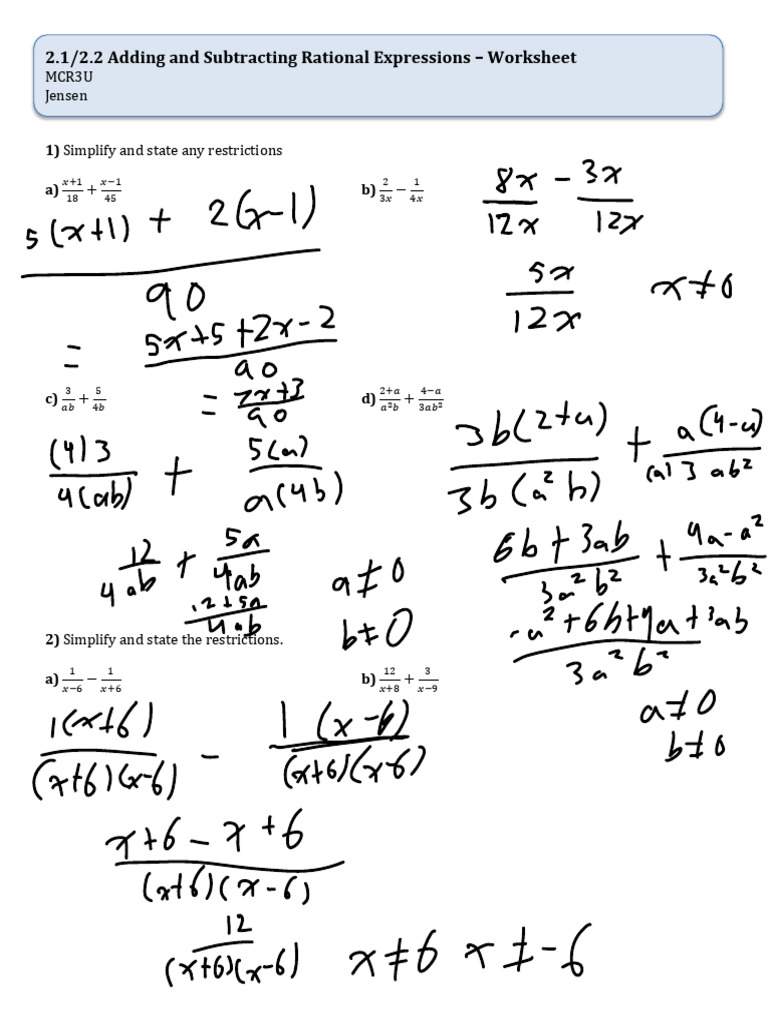 2.1/2.2 Adding and Subtracting Rational Expressions – Worksheet
MCR3U
Jensen
1) Simplify and state any restrictions
a) (x+1)/18 + (x−1)/45
(5(x+1) + 2(x−1))/90
= (5x+5+2x−2)/90
= (7x+3)/90
b) 2/(3x) − 1/(4x)
8x/(12x) − 3x/(12x)
5x/(12x) x≠0
c) 3/(ab) + 5/(4b)
(4)3/(4(ab)) + 5(a)/(a(4b))
12/(4ab) + 5a/(4ab)
(12+5a)/(4ab)
a≠0
b≠0
d) (2+a)/(a²b) + (4−a)/(3ab²)
3b(2+a)/(3b(a²b)) + a(4−a)/((a)3ab²)
(6b+3ab)/(3a²b²) + (4a−a²)/(3a²b²)
(-a²+6b+4a+3ab)/(3a²b²)
a≠0
b≠0
2) Simplify and state the restrictions.
a) 1/(x−6) − 1/(x+6)
1(x+6)/((x+6)(x−6)) − 1(x−6)/((x+6)(x−6))
(x+6−x+6)/((x+6)(x−6))
12/((x+6)(x−6)) x≠6 x≠−6
b) 12/(x+8) + 3/(x−9)